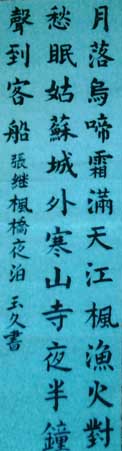 月落烏啼霜滿天江楓漁火對
愁眠姑蘇城外寒山寺夜半鐘
聲到客船張继楓橋夜泊 玉久書